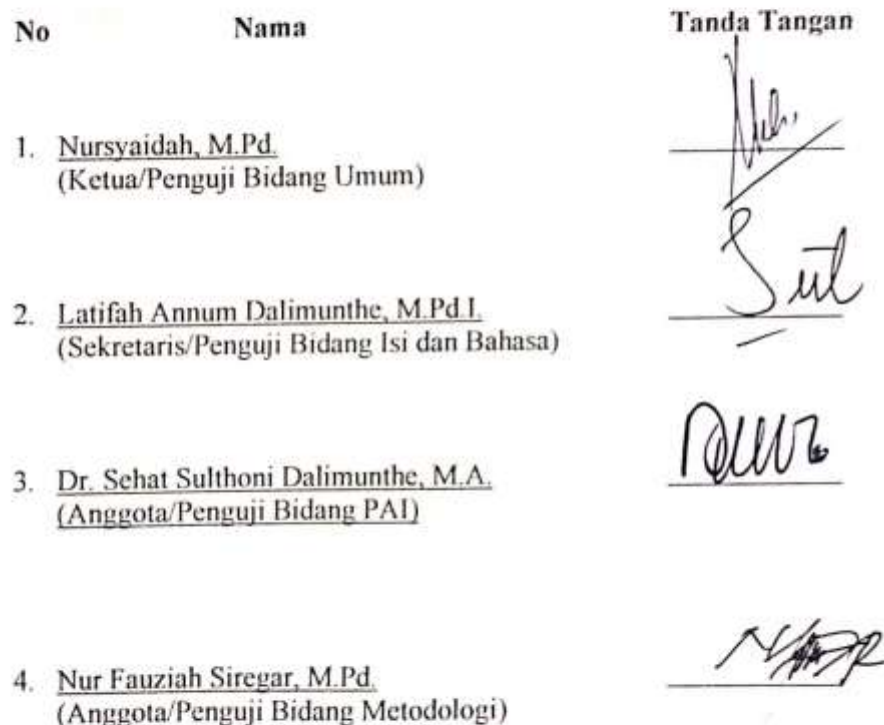 No Nama Tanda Tangan
1. Nursyaidah, M.Pd.
(Ketua/Penguji Bidang Umum)
2. Latifah Annum Dalimunthe, M.Pd.I.
(Sekretaris/Penguji Bidang Isi dan Bahasa)
3. Dr. Sehat Sulthoni Dalimunthe, M.A.
(Anggota/Penguji Bidang PAI)
4. Nur Fauziah Siregar, M.Pd.
(Anggota/Penguji Bidang Metodologi)